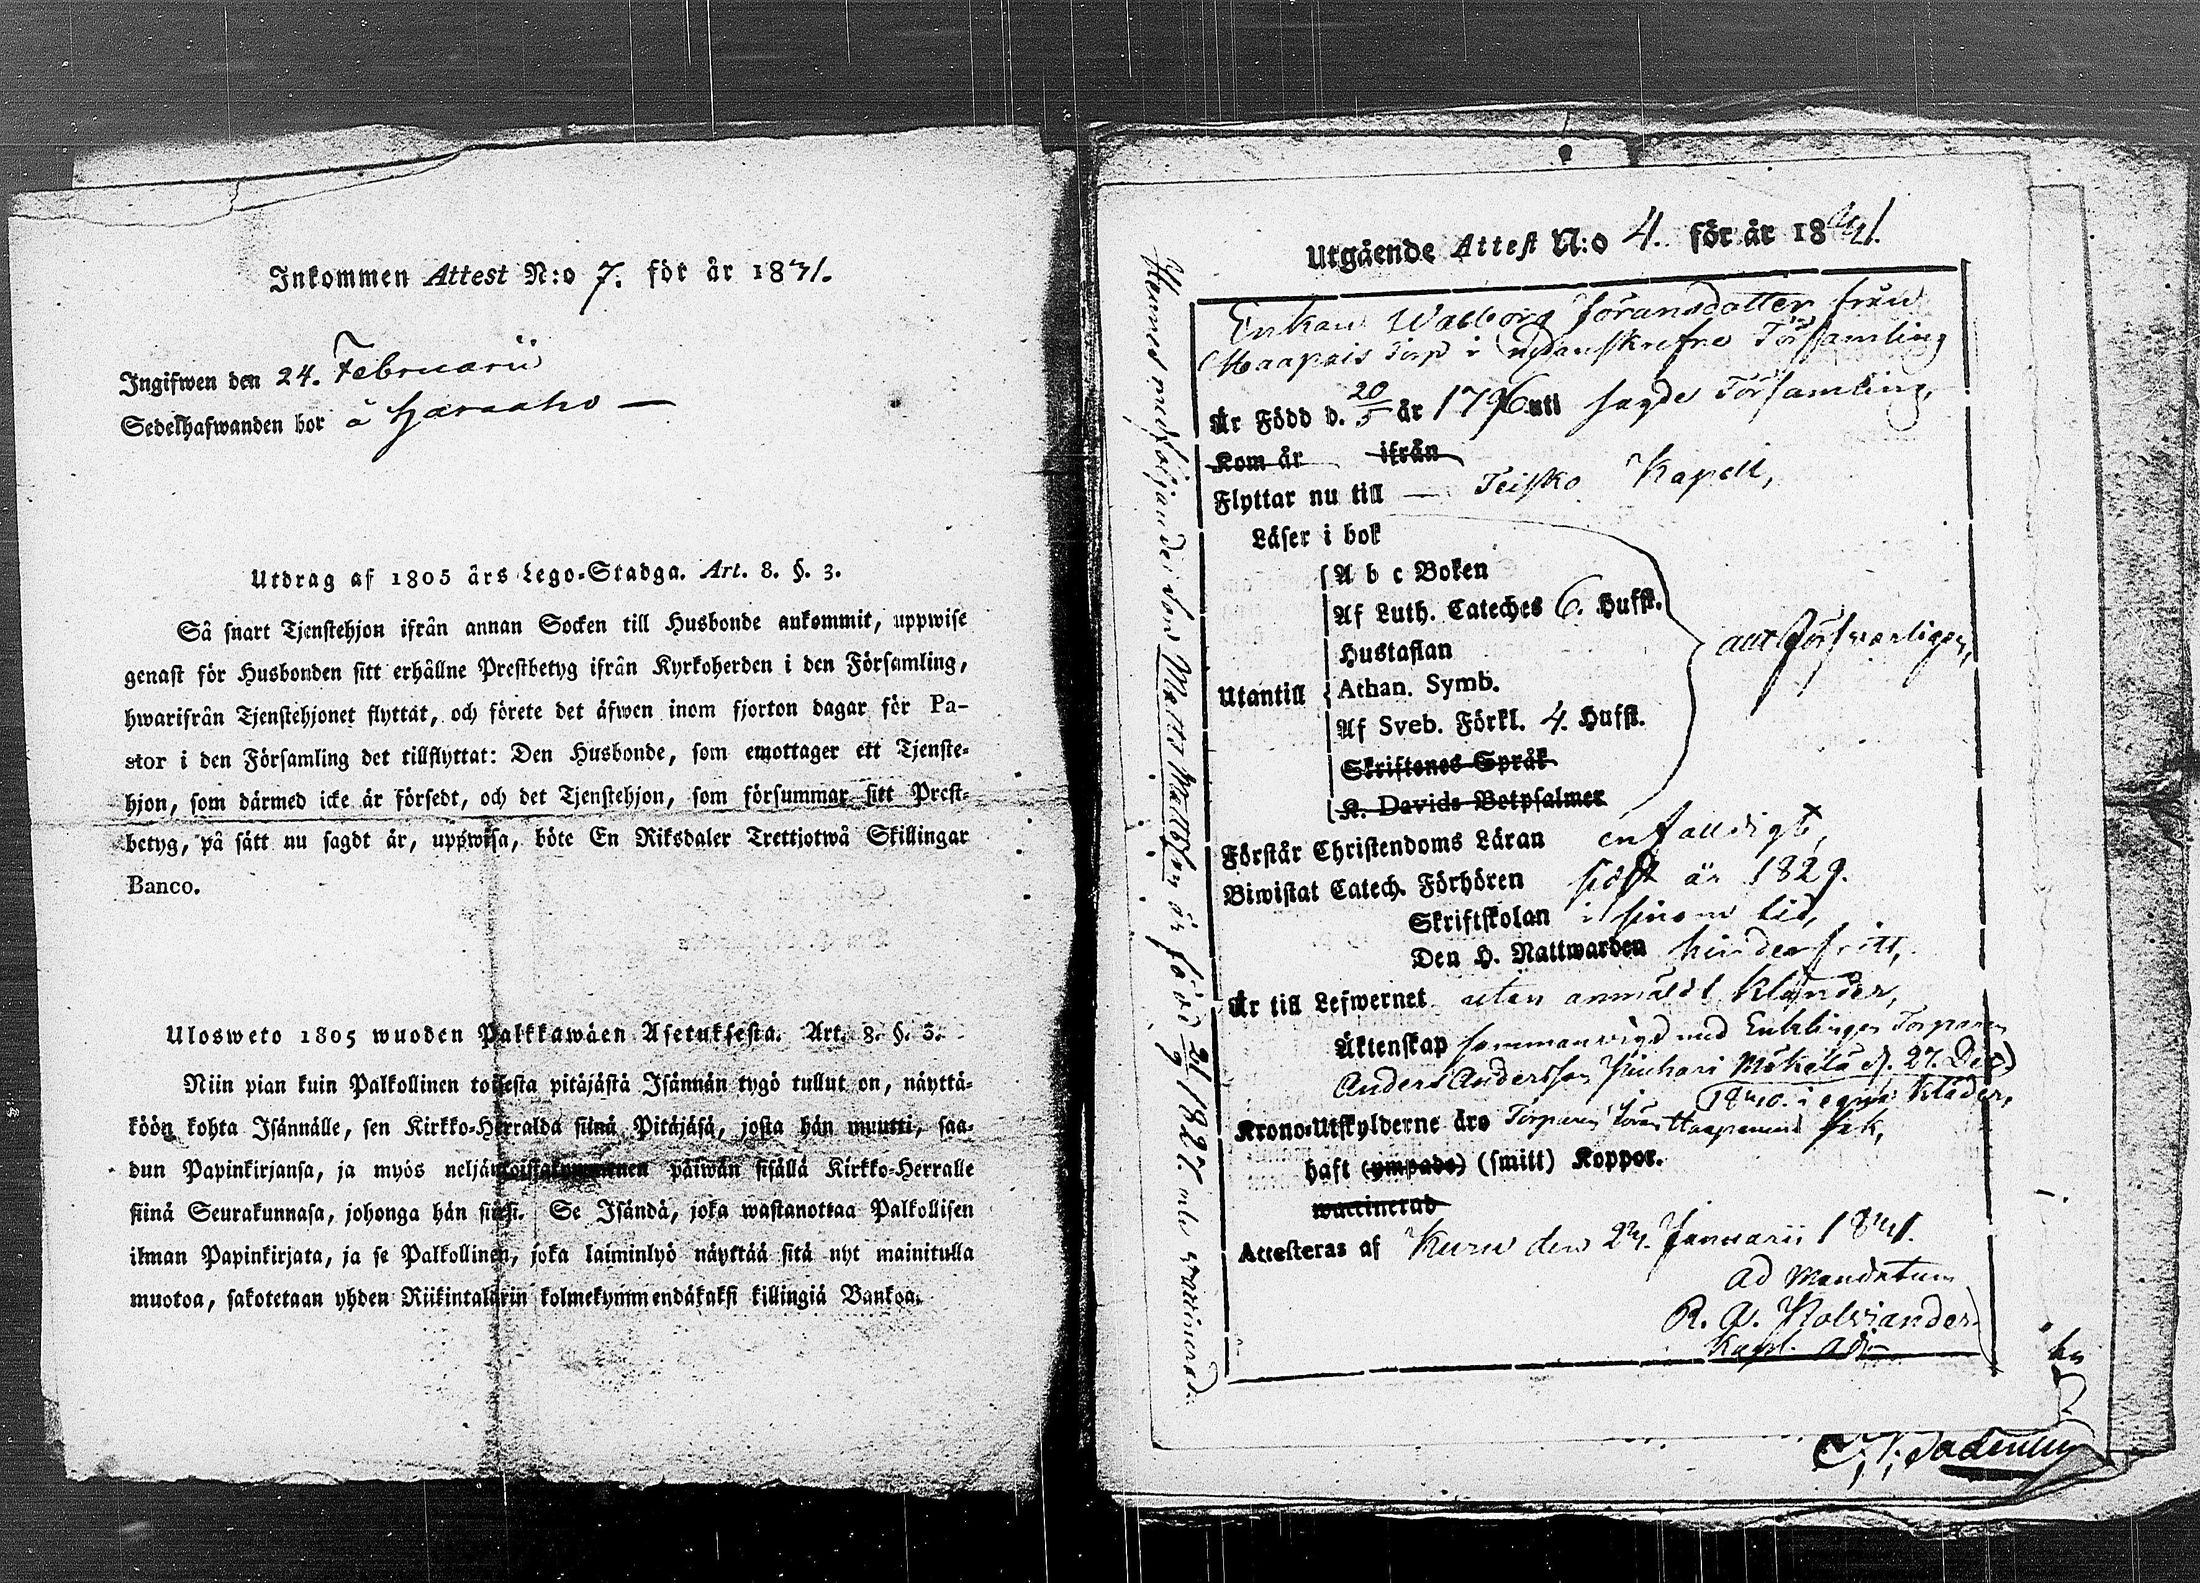 Inkommen Attest N:o 7. för år 1841.
Ingifwen den 24. Februarii
Sedelhafwanden bor å Haraaho —
Utdrag af 1805 års Lego-Stadga. Art. 8. §. 3.
Så snart Tjenstehjon ifrån annan Socken till Husbonde ankommit, uppwise
genast för Husbonden sitt erhållne Prestbetyg ifrån Kyrkoherden i den Församling,
hwarifrån Tjenstehjonet flyttat, och förete det äfwen inom fjorton dagar för Pa-
stor i den Församling det tillflyttat: Den Husbonde, som emottager ett Tjenste-
hjon, som därmed icke är försedt, och det Tjenstehjon, som försummar sitt Prest-
betyg, på sätt nu sagdt är, uppwisa, böte En Riksdaler Trettjotwå Skillingar
Banco.
Ulosweto 1805 wuoden Palkkawäen Asetuksesta. Art. 8. §. 3.
Niin pian kuin Palkollinen toisesta pitäjästä Isännän tygö tullut on, näyttä-
köön kohta Isännälle, sen Kirkko-Herralda siinä Pitäjäsä, josta hän muutti, saa-
dun Papinkirjansa, ja myös neljäntoistakymmenen päiwän sisällä Kirkko-Herralle
siinä Seurakunnasa, johonga hän siirsi. Se Isändä, joka wastanottaa Palkollisen
ilman Papinkirjata, ja se Palkollinen, joka laiminlyö näyttää sitä nyt mainitulla
muotoa, sakotetaan yhden Riikintalarin kolmekymmendäkaksi killingiä Bankoa.
Utgående Attest N:o 4. för år 1841.
Enkan Walborg Göransdotter från
Haapais Torp i nedanskrefne Församling
Är Född d. 20/5 år 1796 uti sagde Församling,
Kom år ifrån
Flyttar nu till — Teisko Kapell,
Läser i bok
A b c Boken
Af Luth. Cateches 6. Hufst.
Hustaflan
allt försvarligen,
Utantill
Athan. Symb.
Af Sveb. Förkl. 4. Hufst.
Skriftenes Språk
K. Davids Botpsalmer
Förstår Christendoms Läran enfalldigt,
Biwistat Catech. Förhören sidst år 1829.
Skriftskolan i sinom tid,
Den H. Nattwarden hinderfritt,
Är till Lefwernet utan anmäldt klander,
Äktenskap sammanvigd med Enklingen Torparen
Anders Andersson Mäkelä d. 27. Dec.
1840. i egna kläder,
Krono-Utskylderne äro Torparen Göran Haapanens sak,
haft (ympade) (smitt) Koppor.
waccinerad
Attesteras af Kuru den 24. Januarii 1841.
Ad Mandatum
R. W. Holviander
Kapl. Adj.
Hennes medföljande son Matts Mattsson är född 21/9 1827. mbr vaccinerad.